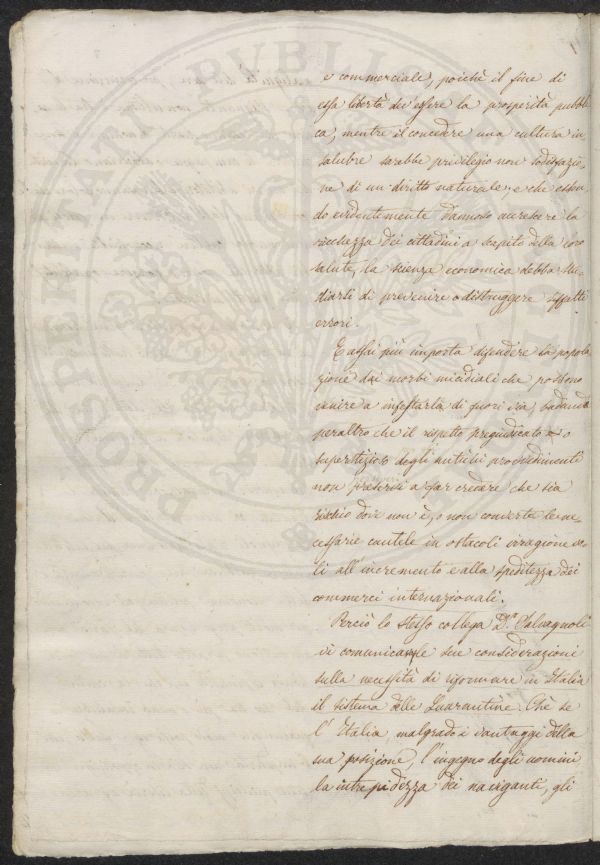 e commerciale, poichè il fine di
essa libertà dev'essere la prosperità pubbli
ca, mentre il concedere una cultura in
salubre sarebbe privilegio non sodisfazio-
ne di un diritto naturale; e che essen-
do evidentemente dannoso accrescere la
ricchezza dei cittadini a scapito della loro
salute, la scienza economica debba stu-
diarsi di prevenire o distruggere siffatti
errori.
E assai più importa difendere la popola
zione dai morbi micidiali che possono
venire a infestarla di fuori via, badando
peraltro che il rispetto pregiudicato o
superstizioso degli antichi provvedimenti
non preservi a far credere che sia
rischio dov'è non è, o non converta le ne-
cessarie cautele in ostacoli irragionevo-
li all'incremento e alla speditezza dei
commerci internazionali.
Perciò lo stesso collega Dr. Salvagnoli
vi comunicò le sue considerazioni
sulla necessità di riformare in Italia
il sistema delle Quarantine. Chè se
l'Italia, malgrado i vantaggi della
sua posizione, l'ingegno degli uomini
la intrepidezza dei naviganti, gli
PROSPERITATI PVBLICAE